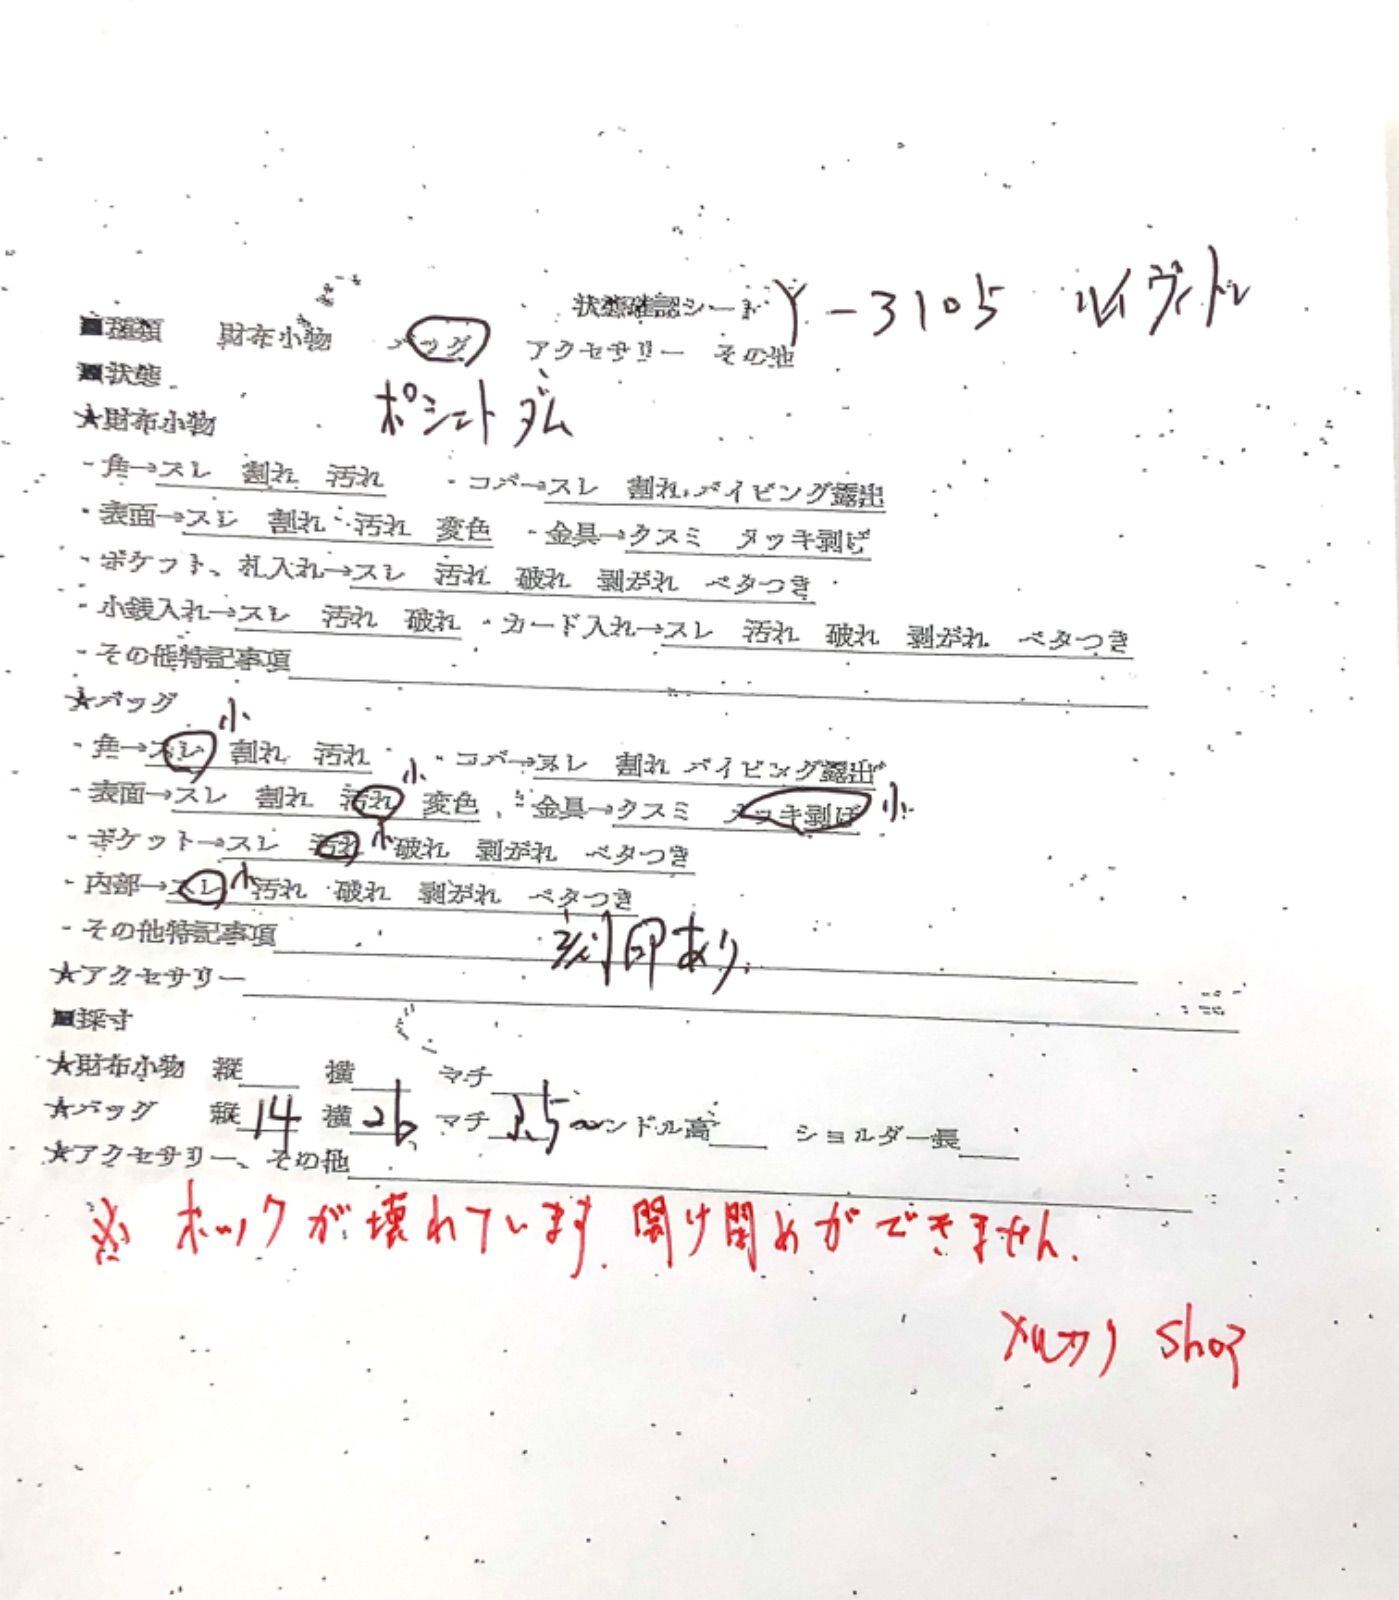 状態確認シート Y-3105 ルイヴィトン
■種類 財布小物 バッグ アクセサリー その他
■状態
ポシェット ダム
★財布小物
・角→スレ 割れ 汚れ ・コバ→スレ 割れ パイピング露出
・表面→スレ 割れ 汚れ 変色 ・金具→クスミ メッキ剥げ
・ポケット、札入れ→スレ 汚れ 破れ 剥がれ ベタつき
・小銭入れ→スレ 汚れ 破れ ・カード入れ→スレ 汚れ 破れ 剥がれ ベタつき
・その他特記事項
★バッグ
・角→スレ 小 割れ 汚れ ・コバ→スレ 割れ パイピング露出
・表面→スレ 割れ 汚れ 小 変色 ・金具→クスミ メッキ剥げ 小
・ポケット→スレ 汚れ 小 破れ 剥がれ ベタつき
・内部→スレ 小 汚れ 破れ 剥がれ ベタつき
・その他特記事項 刻印あり.
★アクセサリー
■採寸
★財布小物 縦 横 マチ
★バッグ 縦14 横26 マチ ハンドル高 ショルダー長
★アクセサリー、その他
※ ホックが壊れています. 開け閉めができません.
メルカリ shop